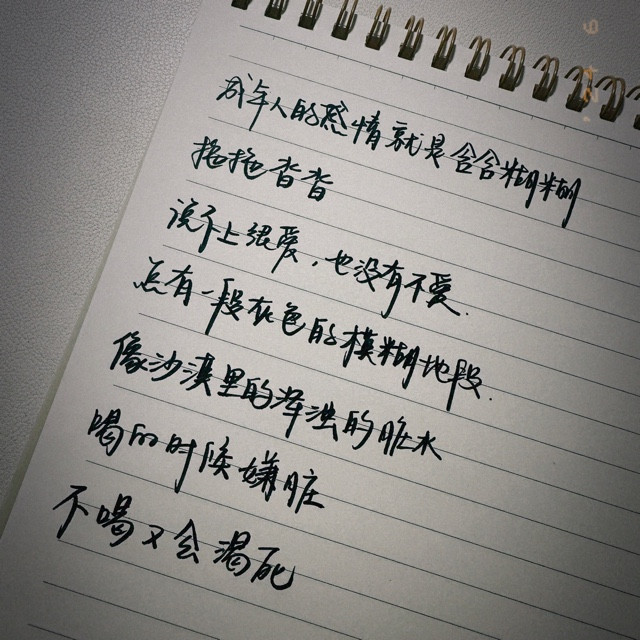 成年人的感情就是含含糊糊
拖拖沓沓
说不上很爱，也没有不爱.
总有一段灰色的模糊地段.
像沙漠里的浑浊的脏水
喝的时候嫌脏
不喝又会渴死